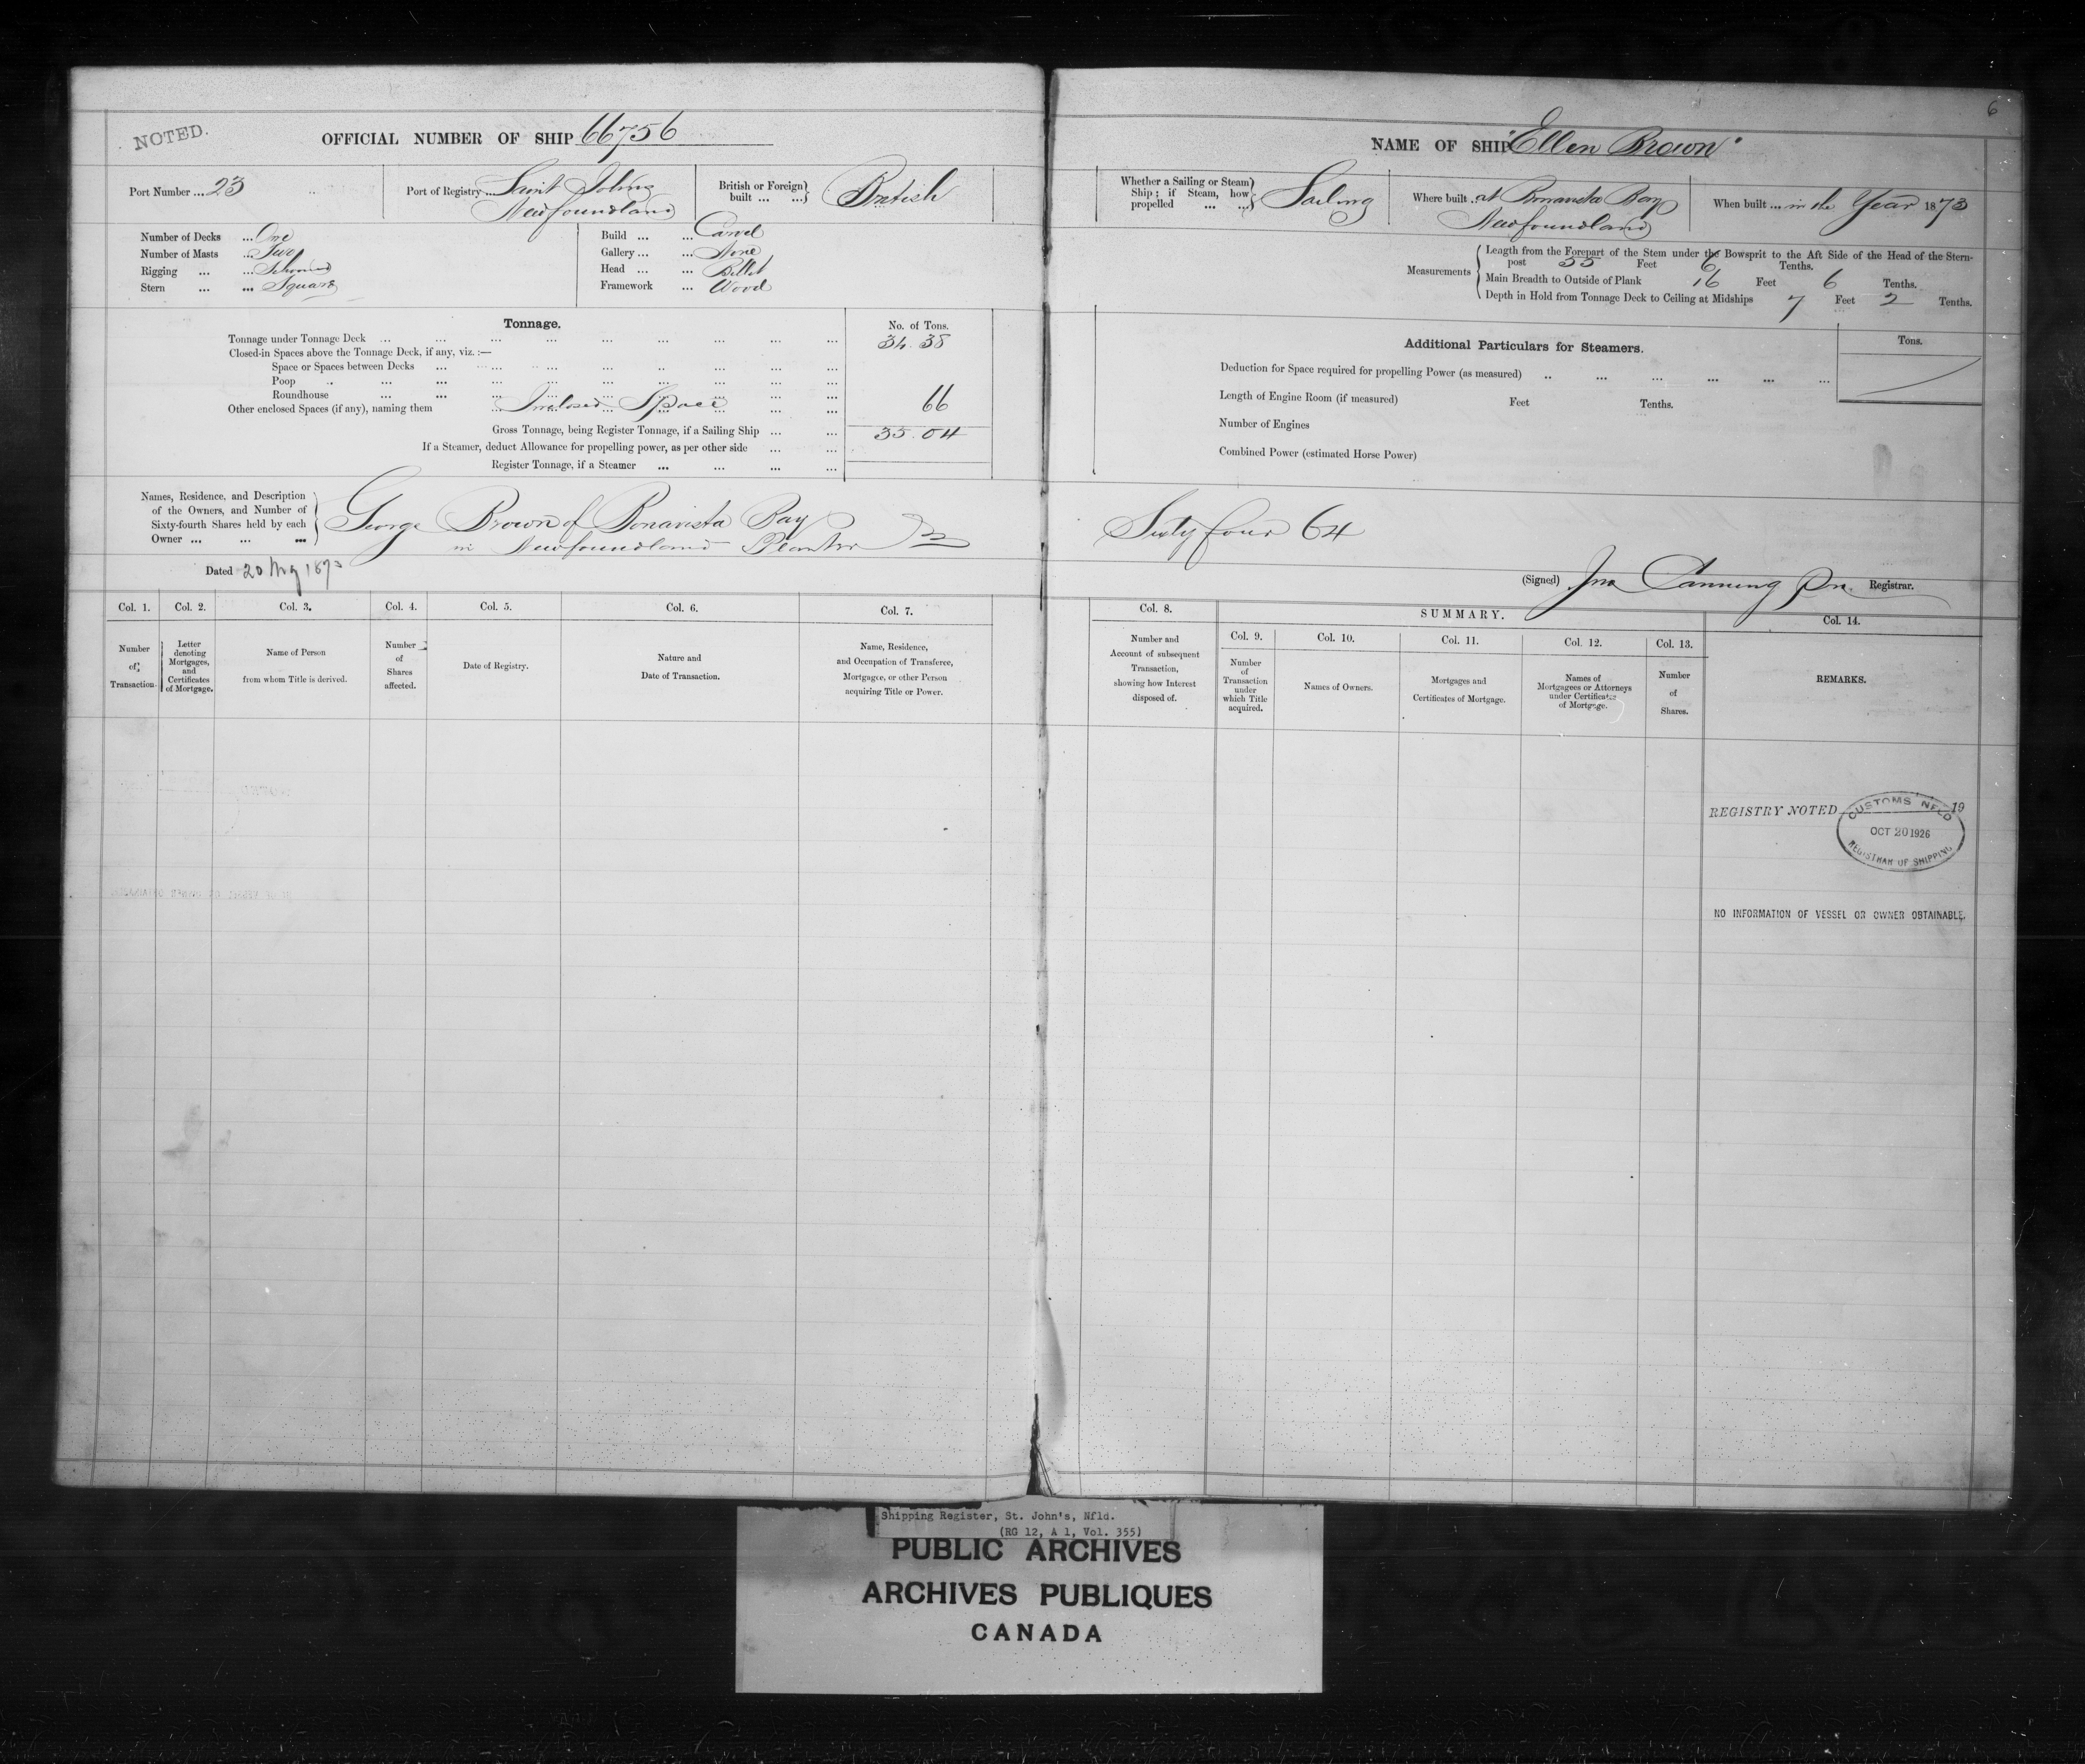 6
NOTED.
OFFICIAL NUMBER OF SHIP 66756
NAME OF SHIP "Ellen Brown"
Port Number ... 23
Port of Registry ... Saint Johns
Newfoundland
British or Foreign built ... ... British
Whether a Sailing or Steam Ship; if Steam, how propelled ... ... Sailing
Where built . at Bonavista Bay
Newfoundland
When built ... in the Year 1873
Number of Decks ... One
Number of Masts ... Two
Rigging ... ... Schooner
Stern ... ... Square
Build ... ... Carvel
Gallery ... ... None
Head ... ... Billet
Framework ... Wood
Measurements
Length from the Forepart of the Stem under the Bowsprit to the Aft Side of the Head of the Stern-
post 55 Feet 6 Tenths.
Main Breadth to Outside of Plank 16 Feet 6 Tenths.
Depth in Hold from Tonnage Deck to Ceiling at Midships 7 Feet 2 Tenths.
Tonnage.
No. of Tons.
Tonnage under Tonnage Deck ... 34.38
Closed-in Spaces above the Tonnage Deck, if any, viz. :—
Space or Spaces between Decks ...
Poop ...
Roundhouse ...
Other enclosed Spaces (if any), naming them ... Inclosed Space 66
Gross Tonnage, being Register Tonnage, if a Sailing Ship ... 35.04
If a Steamer, deduct Allowance for propelling power, as per other side ...
Register Tonnage, if a Steamer ...
Additional Particulars for Steamers.
Tons.
Deduction for Space required for propelling Power (as measured) ...
Length of Engine Room (if measured) Feet Tenths.
Number of Engines
Combined Power (estimated Horse Power)
Names, Residence, and Description
of the Owners, and Number of
Sixty-fourth Shares held by each
Owner ... ... ...
George Brown of Bonavista Bay
in Newfoundland Planter
Sixty four 64
Dated 20 May 1873
(Signed) Jno Canning Registrar.
Col. 1.
Number of Transaction.
Col. 2.
Letter denoting Mortgages, and Certificates of Mortgage.
Col. 3.
Name of Person from whom Title is derived.
Col. 4.
Number of Shares affected.
Col. 5.
Date of Registry.
Col. 6.
Nature and Date of Transaction.
Col. 7.
Name, Residence, and Occupation of Transferee, Mortgagee, or other Person acquiring Title or Power.
Col. 8.
Number and Account of subsequent Transaction, showing how Interest disposed of.
SUMMARY.
Col. 9.
Number of Transaction under which Title acquired.
Col. 10.
Names of Owners.
Col. 11.
Mortgages and Certificates of Mortgage.
Col. 12.
Names of Mortgagees or Attorneys under Certificates of Mortgage.
Col. 13.
Number of Shares.
Col. 14.
REMARKS.
REGISTRY NOTED 19
CUSTOMS NFLD
OCT 20 1926
REGISTRAR OF SHIPPING
NO INFORMATION OF VESSEL OR OWNER OBTAINABLE.
Shipping Register, St. John's, Nfld.
(RG 12, A 1, Vol. 355)
PUBLIC ARCHIVES
ARCHIVES PUBLIQUES
CANADA